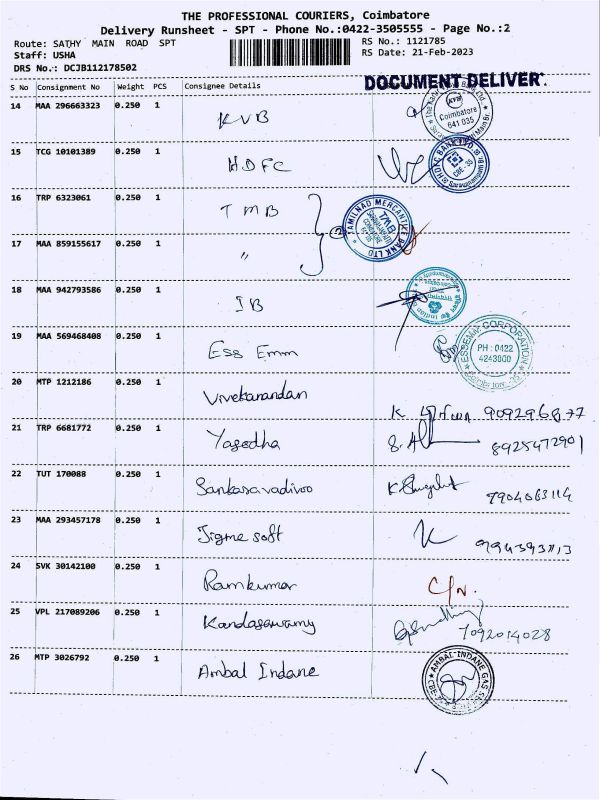 THE PROFESSIONAL COURIERS, Coimbatore
Delivery Runsheet - SPT - Phone No.:0422-3505555 - Page No.:2
Route: SATHY MAIN ROAD SPT
RS No.: 1121785
Staff: USHA
RS Date: 21-Feb-2023
DRS No.: DCJB112178502
DOCUMENT DELIVER.
S No Consignment No Weight PCS Consignee Details
14 MAA 296663323 0.250 1 KVB
KVB Coimbatore 641 035
15 TCG 10101389 0.250 1 HDFC
16 TRP 6323061 0.250 1 TMB
TAMILNAD MERCANTILE BANK LTD TMB
17 MAA 859155617 0.250 1 "
18 MAA 942793586 0.250 1 IB
19 MAA 569468408 0.250 1 Ess Emm
ESSEMM CORPORATION PH : 0422 4243000
20 MTP 1212186 0.250 1 Vivekanandan
9092968 77
21 TRP 6681772 0.250 1 Yasodha
8925472901
22 TUT 170088 0.250 1 Sankaravadivoo
7904063114
23 MAA 293457178 0.250 1 Jigme soft
24 SVK 30142100 0.250 1 Ramkumar
25 VPL 217089206 0.250 1 Kandasawamy
7092014028
26 MTP 3026792 0.250 1 Ambal Indane
AMBAL INDANE GAS